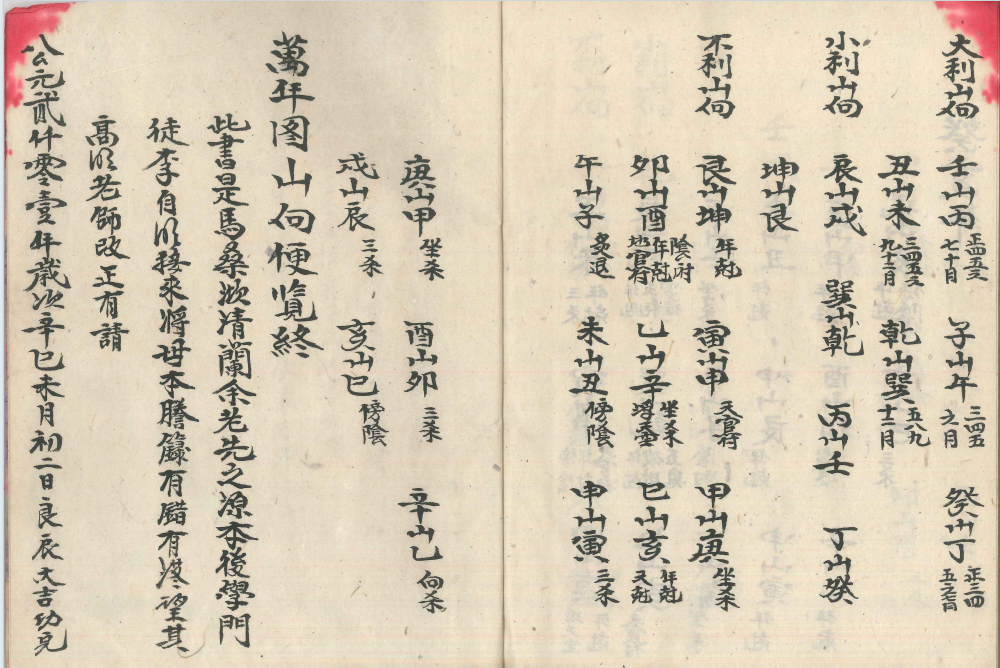 大利山向 壬山丙 正四五六七十月 子山午 三四五六七月 癸山丁 正三四五六七月
丑山未 三四五六九十二月 乾山巽 五八九十二月
小利山向 辰山戌 巽山乾 丙山壬 丁山癸
坤山艮
不利山向 艮山坤 年尅 寅山申 天官符 甲山庚 坐杀
卯山酉 陰府年尅地官符 乙山辛 坐杀 巳山亥 年尅天尅
午山子 炙退 未山丑 傍陰 申山寅 三杀
庚山甲 坐杀 酉山卯 三杀 辛山乙 向杀
戌山辰 三杀 亥山巳 傍陰
萬年图山向便覧終
此書是馬桑坎清蘭余老先之源本後學門
徒李自明接來將母本謄錄有錯有落望其
高明老師改正有請
公元貳仟零壹年歲次辛巳未月初二日良辰大吉功完